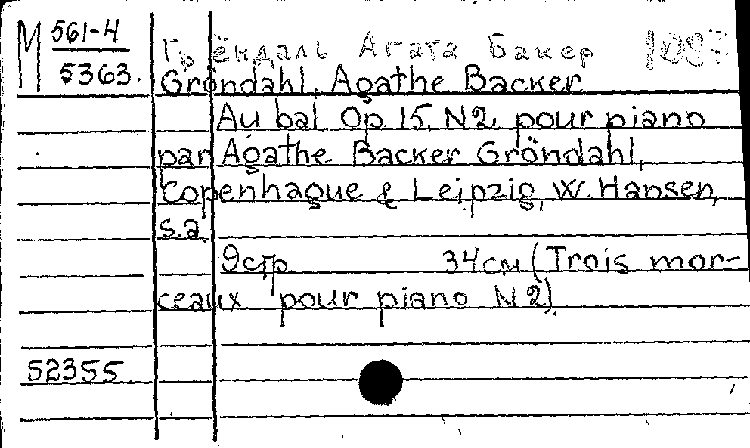 M 561-4
5363.
Грёндаль Агата Бакер
Gröndahl, Agathe Backer
Au bal Op 15, N2. pour piano
par Agathe Backer Gröndahl,
Copenhague & Leipzig, W. Hansen,
s.a.
9стр 34см (Trois mor-
ceaux pour piano N2).
52355